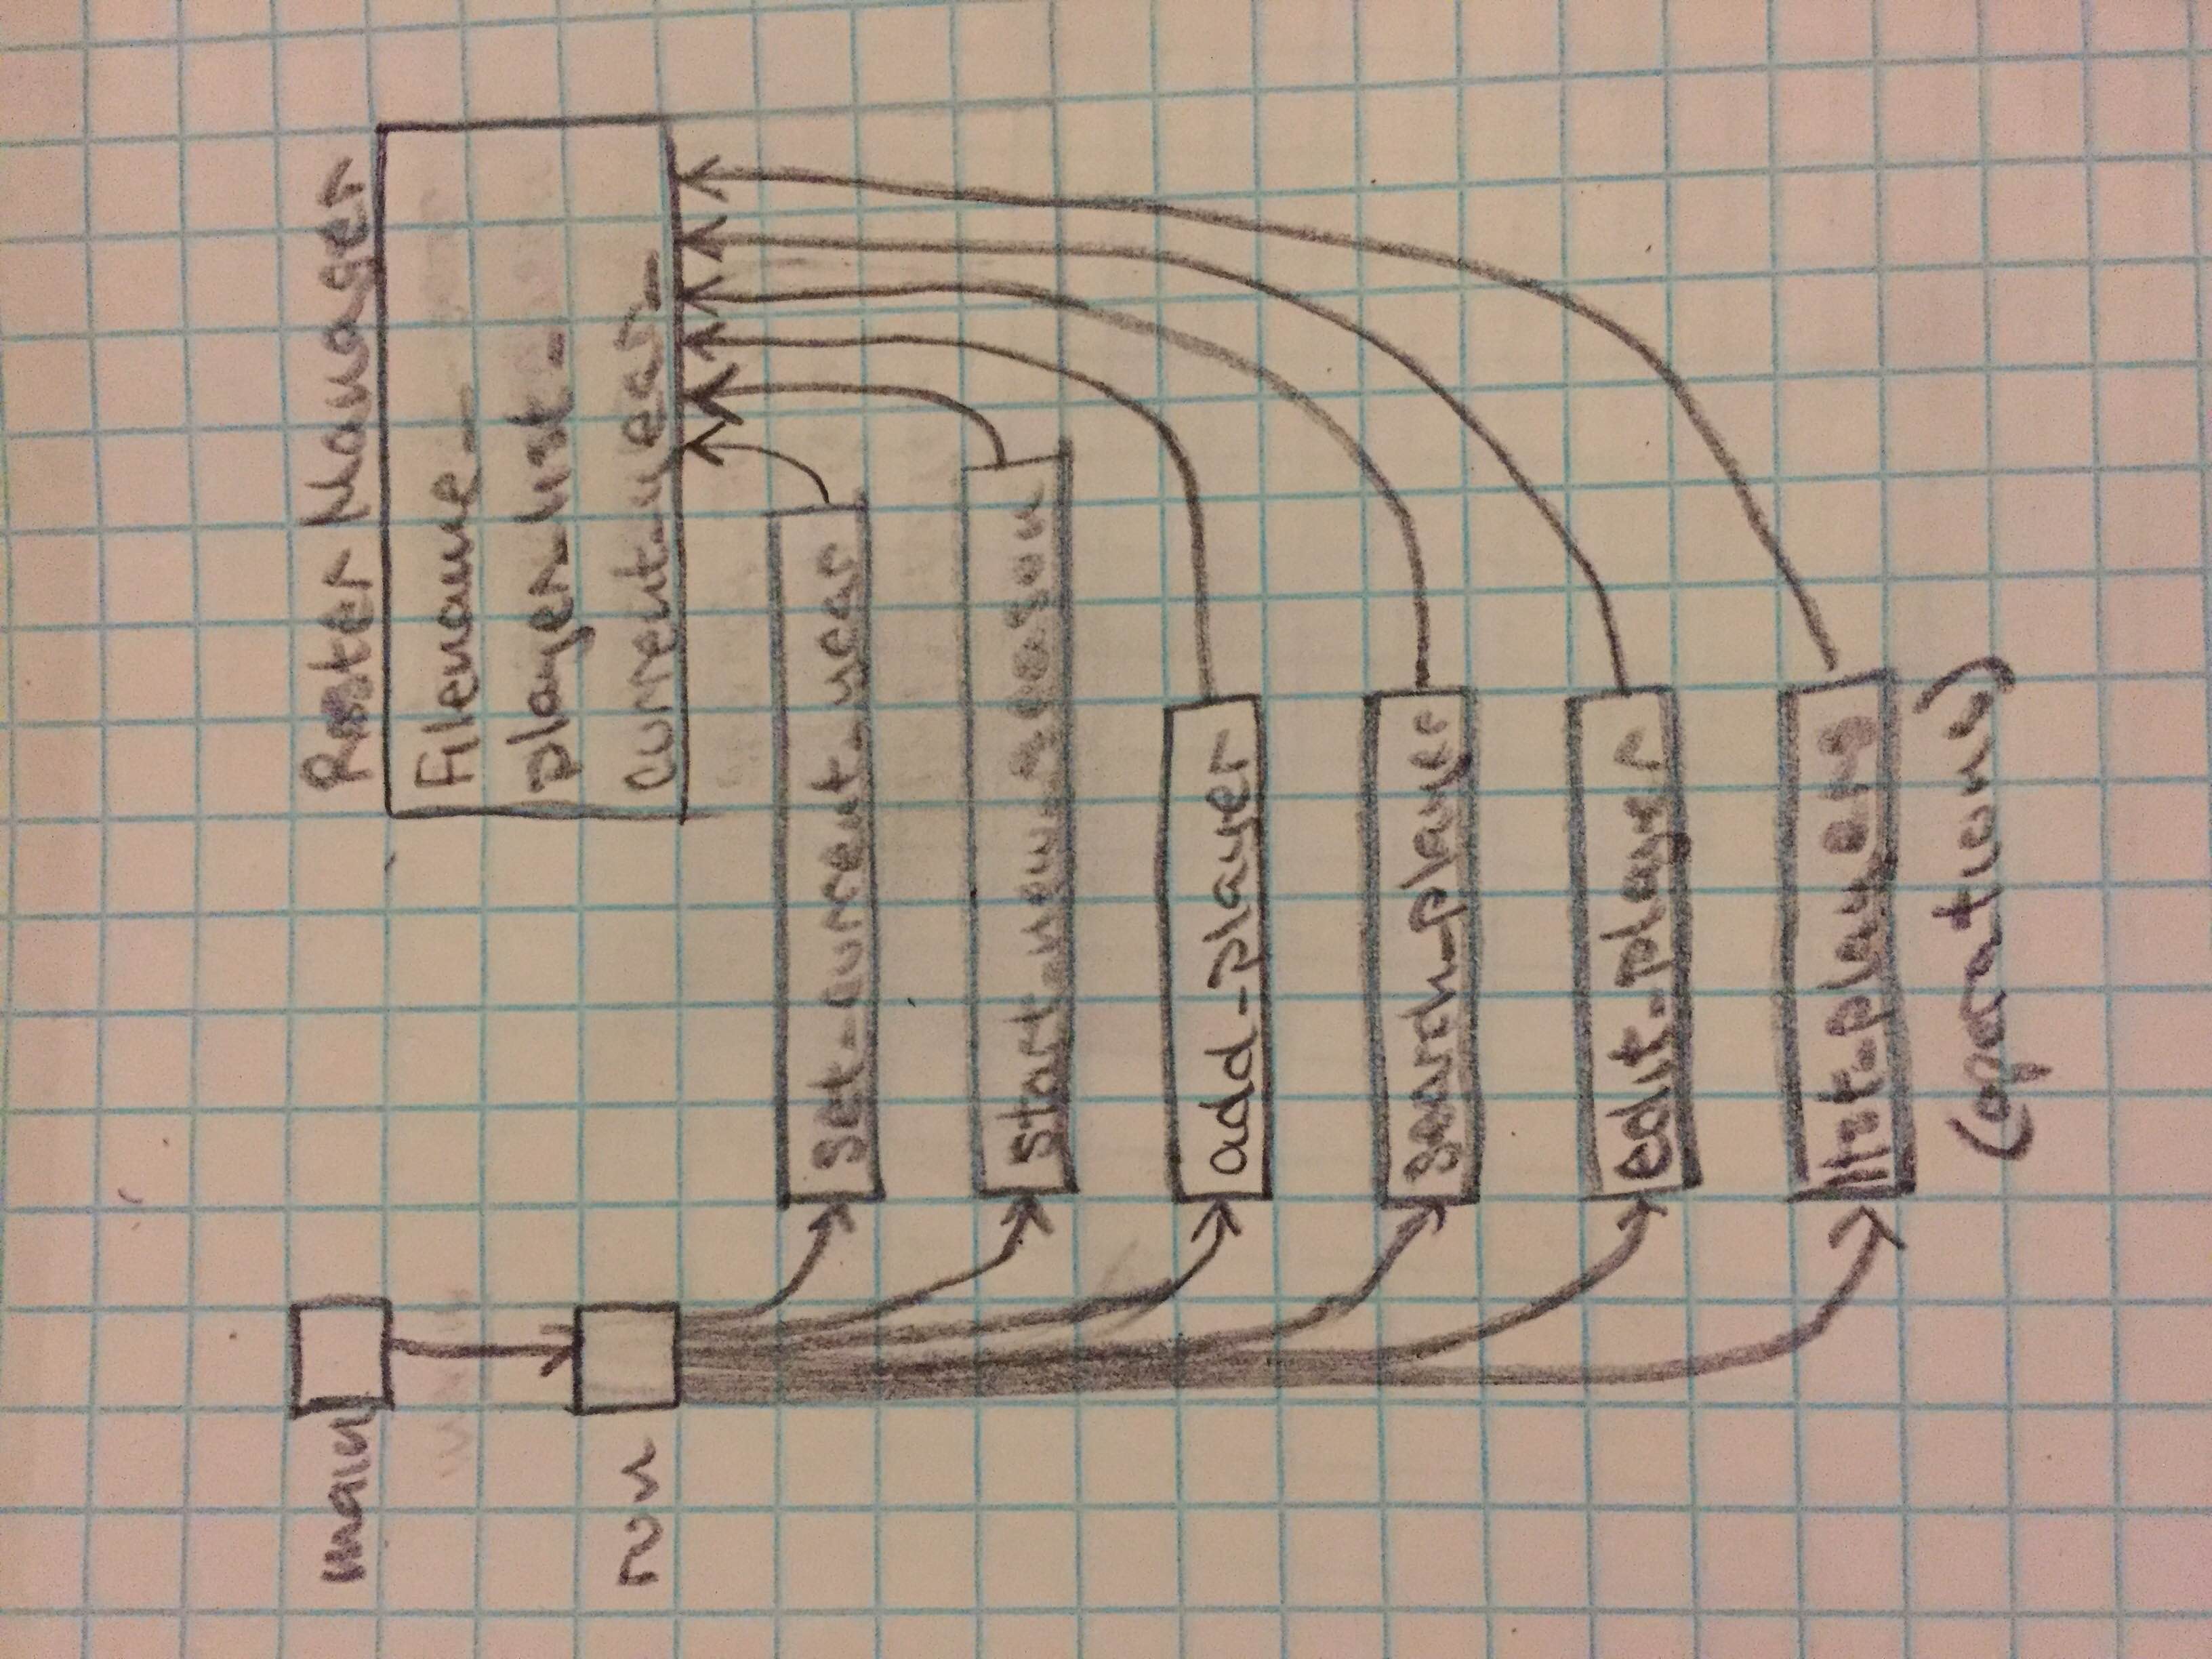 main
Roster Manager
Filename_
player_list_
current_year_
run
set_current_year
start_new_season
add_player
search_player
edit_player
list_players
(operations)